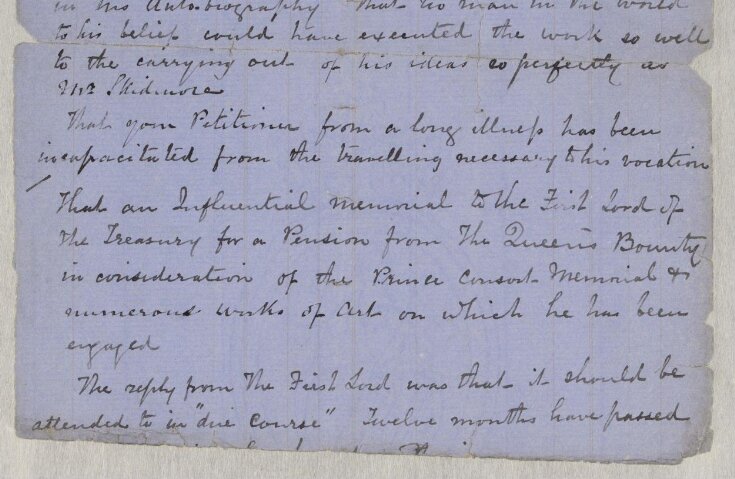 in his Autobiography that no man in the world
to his belief could have executed the work so well
to the carrying out of his ideas so perfectly as
Mr Skidmore
That your Petitioner from a long illness has been
incapacitated from the travelling necessary to his vocation
That an Influential memorial to the First Lord of
the Treasury for a Pension from The Queens Bounty
in consideration of the Prince Consort Memorial &
numerous works of art on which he has been
engaged
The reply from The First Lord was that it should be
attended to in "due course" Twelve months have passed